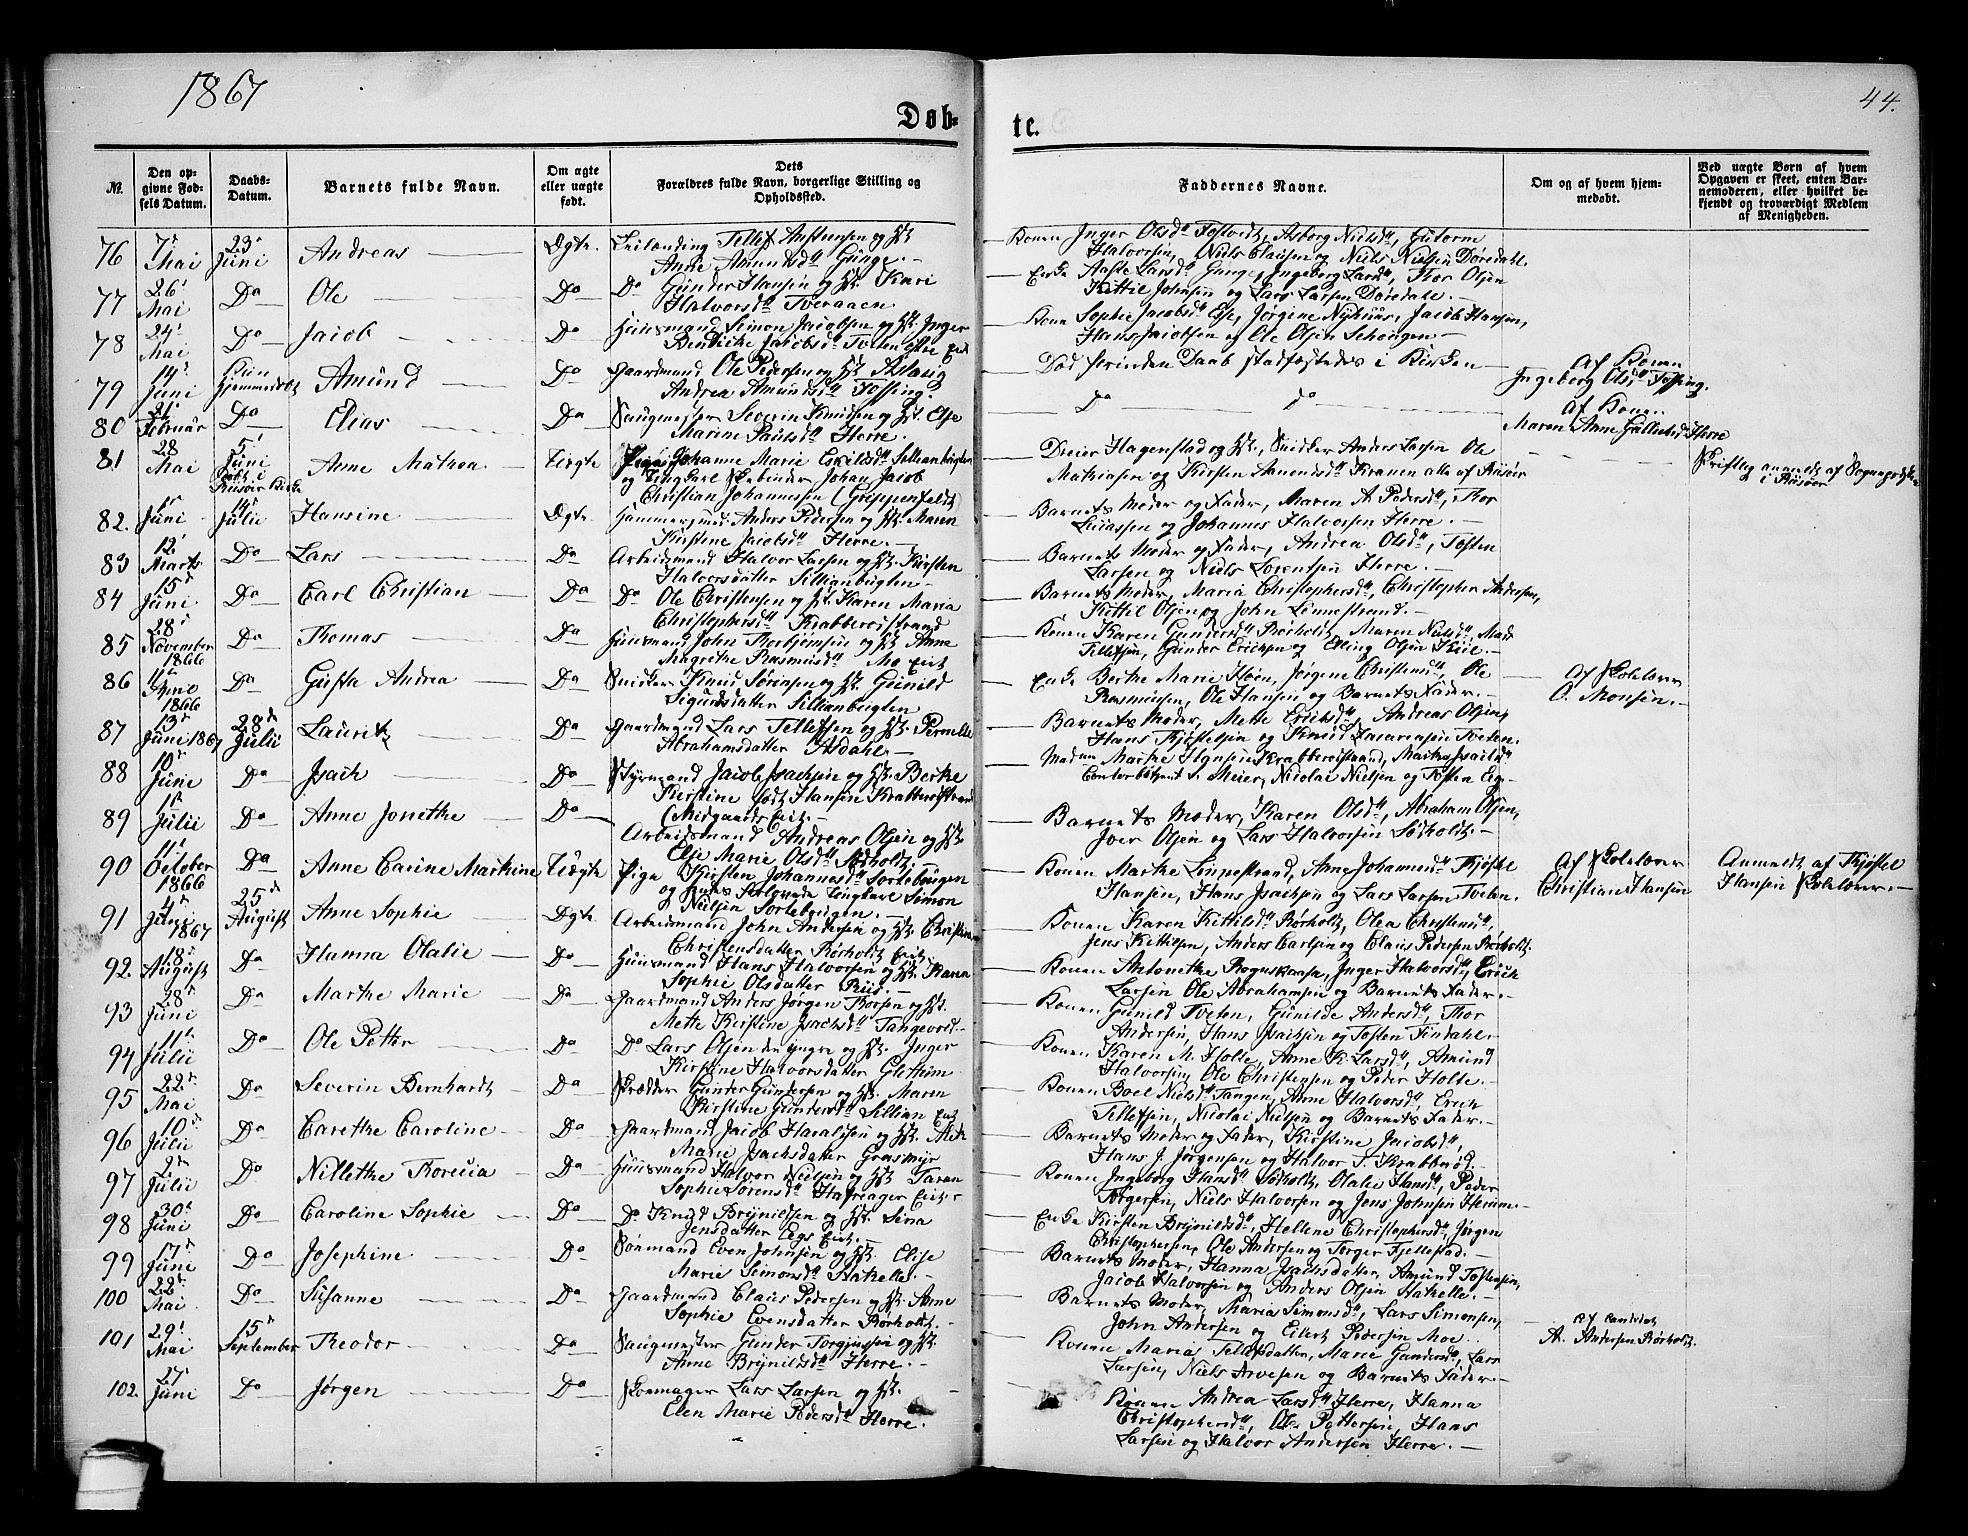 1867
44.
Døb-
te.
№
Den op-
givne Fød-
sels Datum.
Daabs-
Datum.
Barnets fulde Navn.
Om ægte
eller uægte
født.
Dets
Forældres fulde Navn, borgerlige Stilling og
Opholdssted.
Faddernes Navne.
Om og af hvem hjem-
medøbt.
Ved uægte Børn af hvem
Opgaven er skeet, enten Bar-
nemoderen, eller hvilket be-
kjendt og troværdigt Medlem
af Menigheden.
76 7de Mai 23de Juni Andreas Ægte
Anne Amundsd.
Halvorsen, Niels Clausen og Niels Nielsen Dørdahl.
77 26 Mai Do Ole Do Do Gunder Hansen og H. Kari
Halvorsd. Tveraaen
Kittil Johnsen og Lars Larsen Dørdahl.
78 24 Mai Do Jacob Do Huusmand Simon Jacobsen og H. Inger
Hans Jacobsen og Ole Olsen
79 14 Juni Hjemmedøbt Amund Do Gaardmand Ole Pedersen og H.
Andrea Amundsd. Fossing.
Død forinden Daab stadfæstedes i Kirken
Af Konen
Ingeborg Olsd. Fossing.
80 21 Februar Do Elias Do Saugmester Severin Knudsen og H. Else
Marine Paulsd. Herre.
Do Do
Af Konen
Maren Anne Herre
81 28 Mai 5 Juni døbt i Risøer Kirke Anne Mathea Uægte Pige Johanne Marie
og Ungkarl Skibinder Johan Jacob
Christian Johannesen (Grippenfeldt)
Dreier Hagenstad og H., Snidker Anders Larsen Ole
Mathiasen og Kirsten Amundsd. Kranen alle af Risøer
Skriftlig anmeldt af Sognepræsten
i Risøer
82. 1 Juni 14 Julii Hansine Ægte Hammersmed Anders Pedersen og H. Maren
Kirstine Jacobsd. Herre.
Barnets Moder og Fader, Maren A. Pedersd., Thor
Lucassen og Johannes Halvorsen Herre.
83 12 Marts Do Lars Do Arbeidsmand Halvor Larsen og H. Kirsten
Halvorsdatter
Barnets Moder og Fader, Andrea Olsd., Tosten
Larsen og Niels Lorentsen Herre.
84 15 Juni Do Carl Christian Do Do Ole Christensen og H. Karen Maria
Christophersd. Krabberødstrand
Barnets Moder, Maria Christophersd., Christopher Andersen,
Kittil Olsen og John Linnestrand.
85 28 November 1866 Do Thomas Do Huusmand John Thorbjørnsen og H. Anne
Magrethe Rasmusd. Mo Eie
Konen Karen Gundersd. Rørholt, Maren Nielsd.
Tellefsen, Gunder Ericksen og Elling Olsen
86 11 April 1866 Do Gusta Andrea Do Snidker Knud Sørensen og H. Gunild
Sigurdsdatter
Enke Berthe Marie Høen, Jørgine Christensd., Ole
Rasmussen, Ole Hansen og Barnets Fader.
Af Skolelærer
O. Monsen.
87 13 Juni 1867 28de Julii Lauritz Do Gaardmand Lars Tellefsen og H. Pernelle
Abrahamsdatter Asdahl.
Barnets Moder, Mette Ericksd., Andreas Olsen,
Hans Kjøstelsen og Knud Tveten.
88 10 Juni Do Isach Do Styrmand Jacob Isachsen og H. Berthe
Kirstine født Hansen Krabberødstrand
(Midgaards Eie.)
Madam Marthe Hansen Krabberødstrand, Martha Isachsd.
Meier, Nicolai Nielsen og Tosten Eeg
89 1 Julii Do Anne Jonethe Do
Arbeidsmand Andreas Olsen og H.
Else Marie Olsd. Sørholt.
Barnets Moder, Karen Olsd., Abraham Olsen,
Iver Olsen og Lars Halvorsen Sørholt.
90 11 October 1866 Do Anne Carine Marthine Uægte Pige Kirsten Johannesd. Sortebøugen
og Ungkarl Simon
Nielsen Sortebrugen.
Konen Marthe Linnestrand, Anne Johannesd. Kjøstel
Hansen, Hans Isachsen og Lars Larsen Tveten.
Af Skolelærer
Christian Hansen
Anmeldt af Kjøstel
Hansen Skolelærer.
91 4de Juni 1867 25de August Anne Sophie Ægte Arbeidsmand John Andersen og H. Christine
Christensdatter Rørholt Eie
Konen Karen Kittilsd. Rørholt, Olea Christensd.,
Jens Kittilsen, Anders Carlsen og Claus Pedersen Rørholt
92. 18 August Do Hanna Olalie Do Huusmand Hans Halvorsen og H. Karen
Sophie Olsdatter Riis.
Konen Antonethe Rognskaasa, Inger Halvorsd., Erick
Larsen Ole Abrahamsen og Barnets Fader.
93 28 Juni Do Marthe Marie Do Gaardmand Anders Jørgen Thorsen og H.
Mette Kirstine Isachsd. Tangevold
Konen Gunild Tveten, Gunilde Andersd., Thor
Andersen, Hans Isachsen og Tosten Findahl.
94 11 Julii Do Ole Petter Do Do Lars Olsen den yngre og H. Inger
Kirstine Halvorsdatter
Konen Karen M. Holte, Anne K. Larsd., Amund
Halvorsen, Ole Christensen og Peder Holte.
95 22 Mai Do Severin Bernhardt Do Skrædder Gunder Gundersen og H. Maren
Kirstine Gundersd. Sillian Eie
Konen Boel Nielsd. Tangen, Anne Halvorsd., Erick
Tellefsen, Nicolai Nielsen og Barnets Fader.
96 10 Julii Do Carethe Caroline Do Gaardmand Jacob Haraldsen og H.
Marie Isachsdatter Grasmyr
Barnets Moder og Fader, Kirstine Jacobsd.,
Hans J. Jørgensen og Halvor T. Krabberød.
97 2 Julii Do Nillethe Thorecia Do Huusmand Halvor Nielsen og H. Taran
Sophie Sørensd. Hafsager Eie
Konen Ingeborg Hansd. Sørholt, Olalie Hansd., Peder
Torgersen, Niels Halvorsen og Jens Johnsen Herum.
98 30 Juni Do Caroline Sophie Do Do Knud Brynildsen og H. Sina
Jensdatter Eegs Eie.
Enke Kirsten Brynildsd., Hellene Christophersd., Jørgen
Christophersen, Ole Andersen og Torger Fjellestad.
99 17 Juni Do Josephine Do Sømand Even Johnsen og H. Elise
Marie Simonsd. Stathelle.
Barnets Moder, Hanna Isachsdatter, Amund Tostensen,
Jacob Halvorsen og Anders Olsen Stathelle.
100 22 Mai Do Susanne Do Gaardmand Claus Pedersen og H. Anne
Sophie Evensdatter Rørholt.
Barnets Moder, Maria Simonsd., Lars Simonsen,
John Andersen og Eilert Pedersen Moe.
101 29 Mai 15 September Theodor Do Saugmester Gunder Torgiussen og H.
Anne Brynildsd. Herre.
Konen Maria Tellefsdatter, Marie Gundersd., Lars
Larsen, Niels Arvesen og Barnets Fader.
Af Candidat
A. Andersen Rørholt.
102. 27 Juni Do Jørgen Do Skomager Lars Larsen og H.
Elen Marie Pedersd. Herre.
Konen Andrea Larsd. Herre, Hanna
Christophersd., Ole Pettersen, Hans
Larsen og Halvor Andersen Herre.